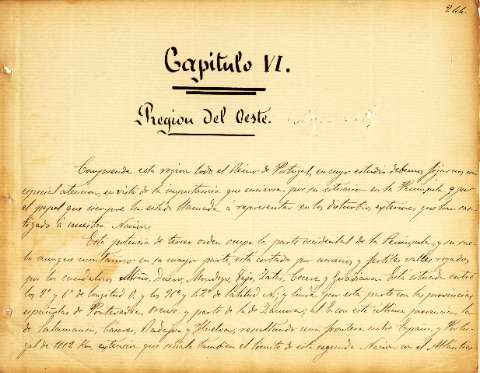 244.
Capitulo VI.
Region del Oeste.
Comprende esta region todo el Reino de Portugal, en cuyo estudio debemos fijar con
especial atencion, en vista de la importancia que encierra por su situacion en la Peninsula y por
el papel que siempre ha estado llamada á representar en los disturbios exteriores que han
á nuestra Nacion.
Esta potencia de tercer orden ocupa la parte occidental de la Peninsula, y su
aunque montañoso en su mayor parte, está cortado por amenos y fertiles valles regados
por los caudalosos Miño, Duero, Mondego, Tajo, y Guadiana. Está situada entre
los y de longitud O. y los y de latitud N. y linda por esta parte con las provincias
españolas de Pontevedra, Orense y parte de la de Zamora, al E con esta última provincia, la
de Salamanca, Caceres, Badajoz y Huelva, resultando una frontera entre España y
de 1112 Km. extension que señala tambien el límite de esta segunda Nacion con el Atlantico